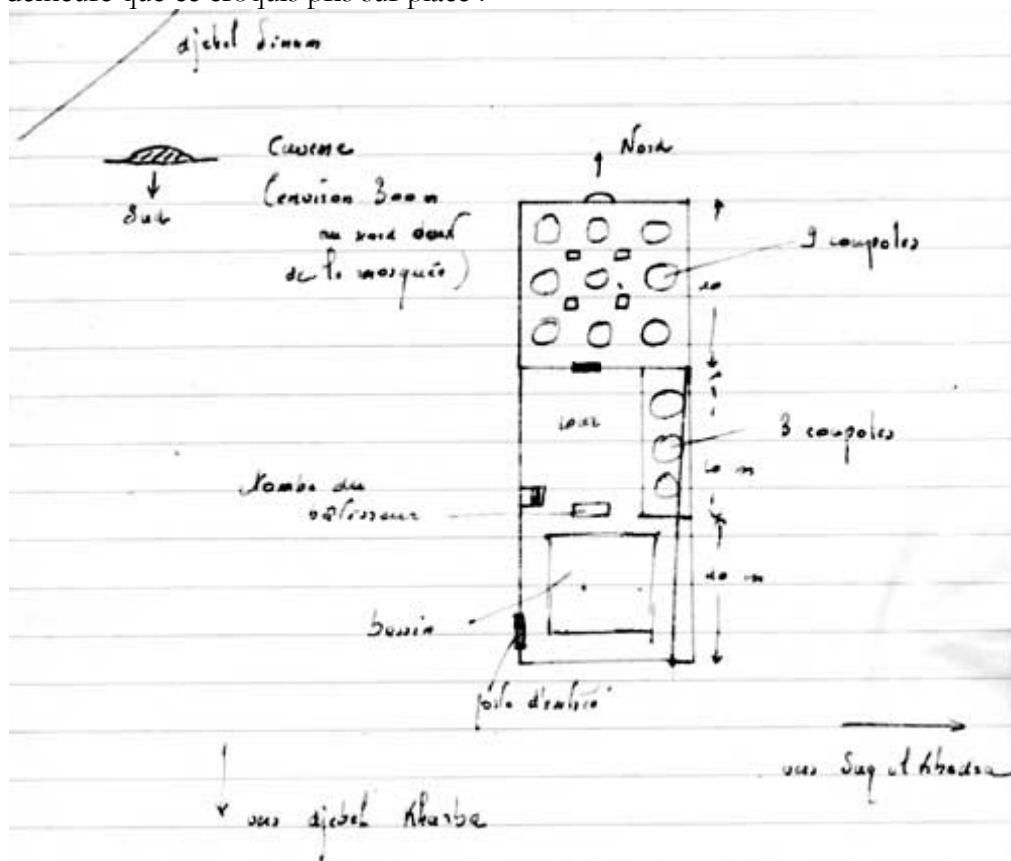 demeure que ce croquis pris sur place :
djebel Sinam
Caverne
(environ 300 m
au nord ouest
de la mosquée)
Sud
Nord
9 coupoles
10
cour
3 coupoles
10 m
Tombe du
bâtisseur
10 m
bassin
porte d'entrée
vers Suq el Khadra
vers djebel Kharba